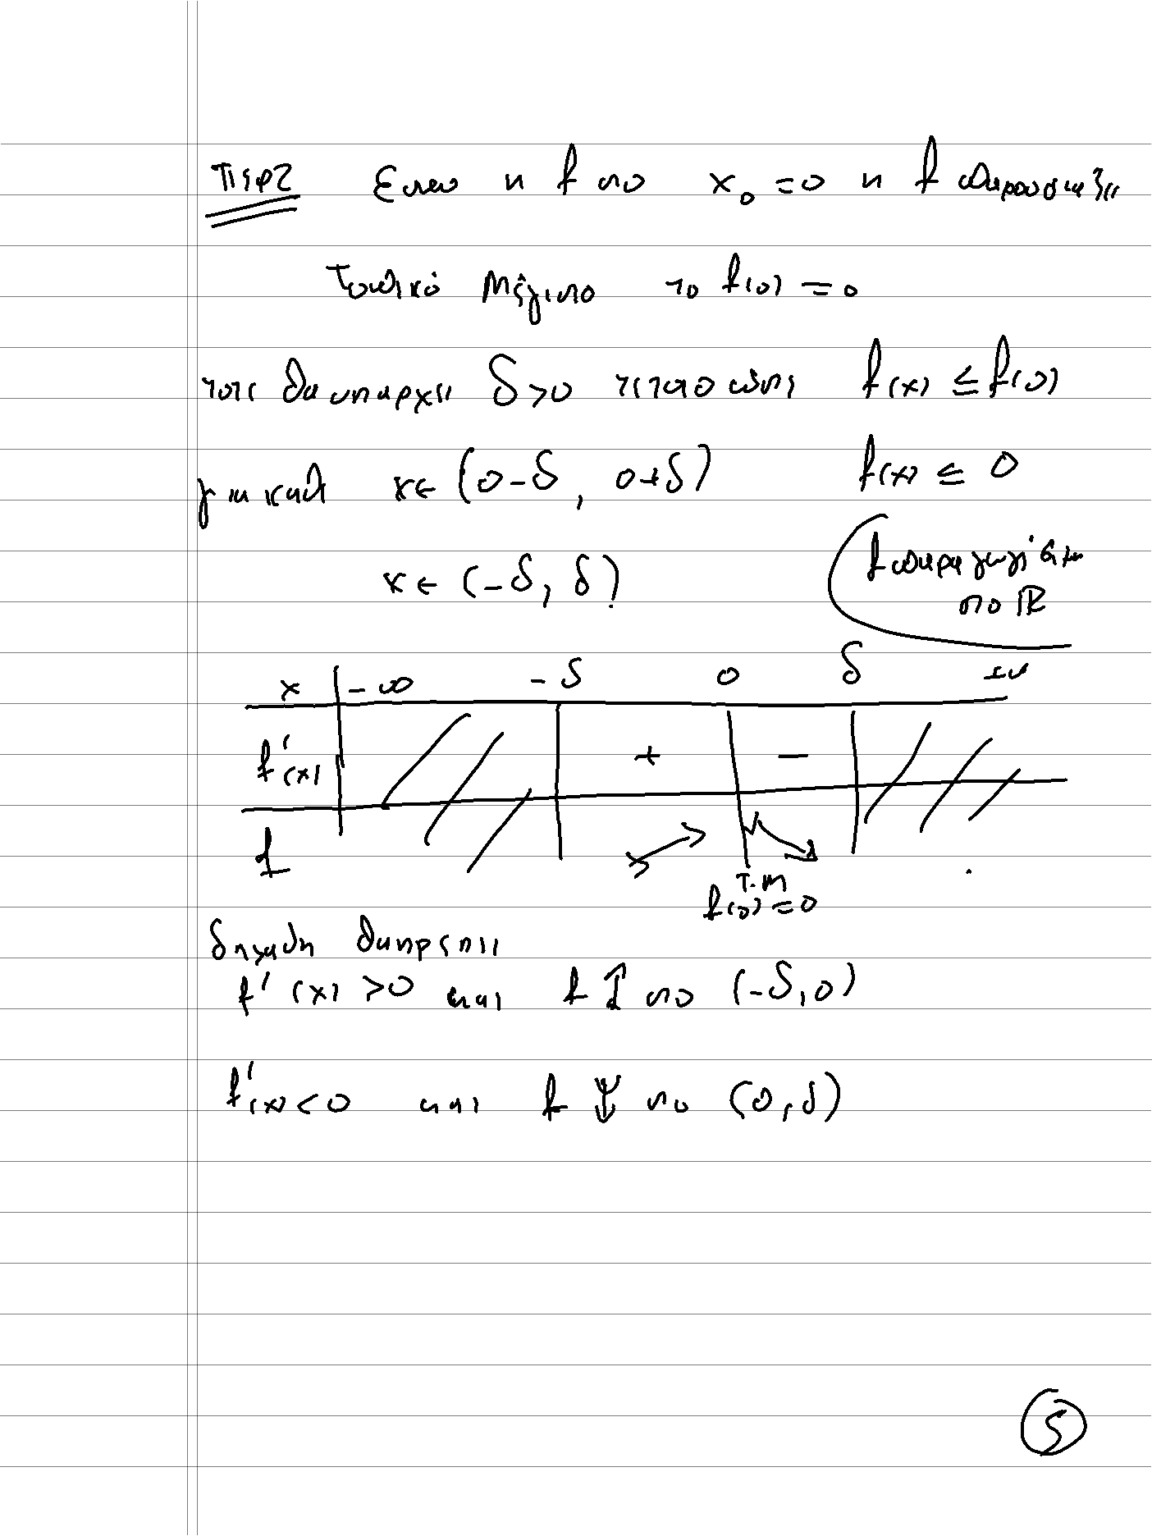 Περ2 Εστω η f στο x₀ = 0 η f παρουσιάζει
Τοπικό Μέγιστο το f(0) = 0
τοτε θα υπαρχει δ>0 τετοιο ώστε f(x) ≤ f(0)
για καθε x∈ (0-δ, 0+δ) f(x) ≤ 0
x∈ (-δ, δ)
f παραγωγίσιμη
στο ℝ
x -∞ -δ 0 δ +∞
f'(x) + -
f ↗ ↘
Τ.Μ
f(0)=0
δηλαδη θα πρεπει
f'(x) >0 και f ↑ στο (-δ,0)
f'(x)<0 και f ↓ στο (0,δ)
5